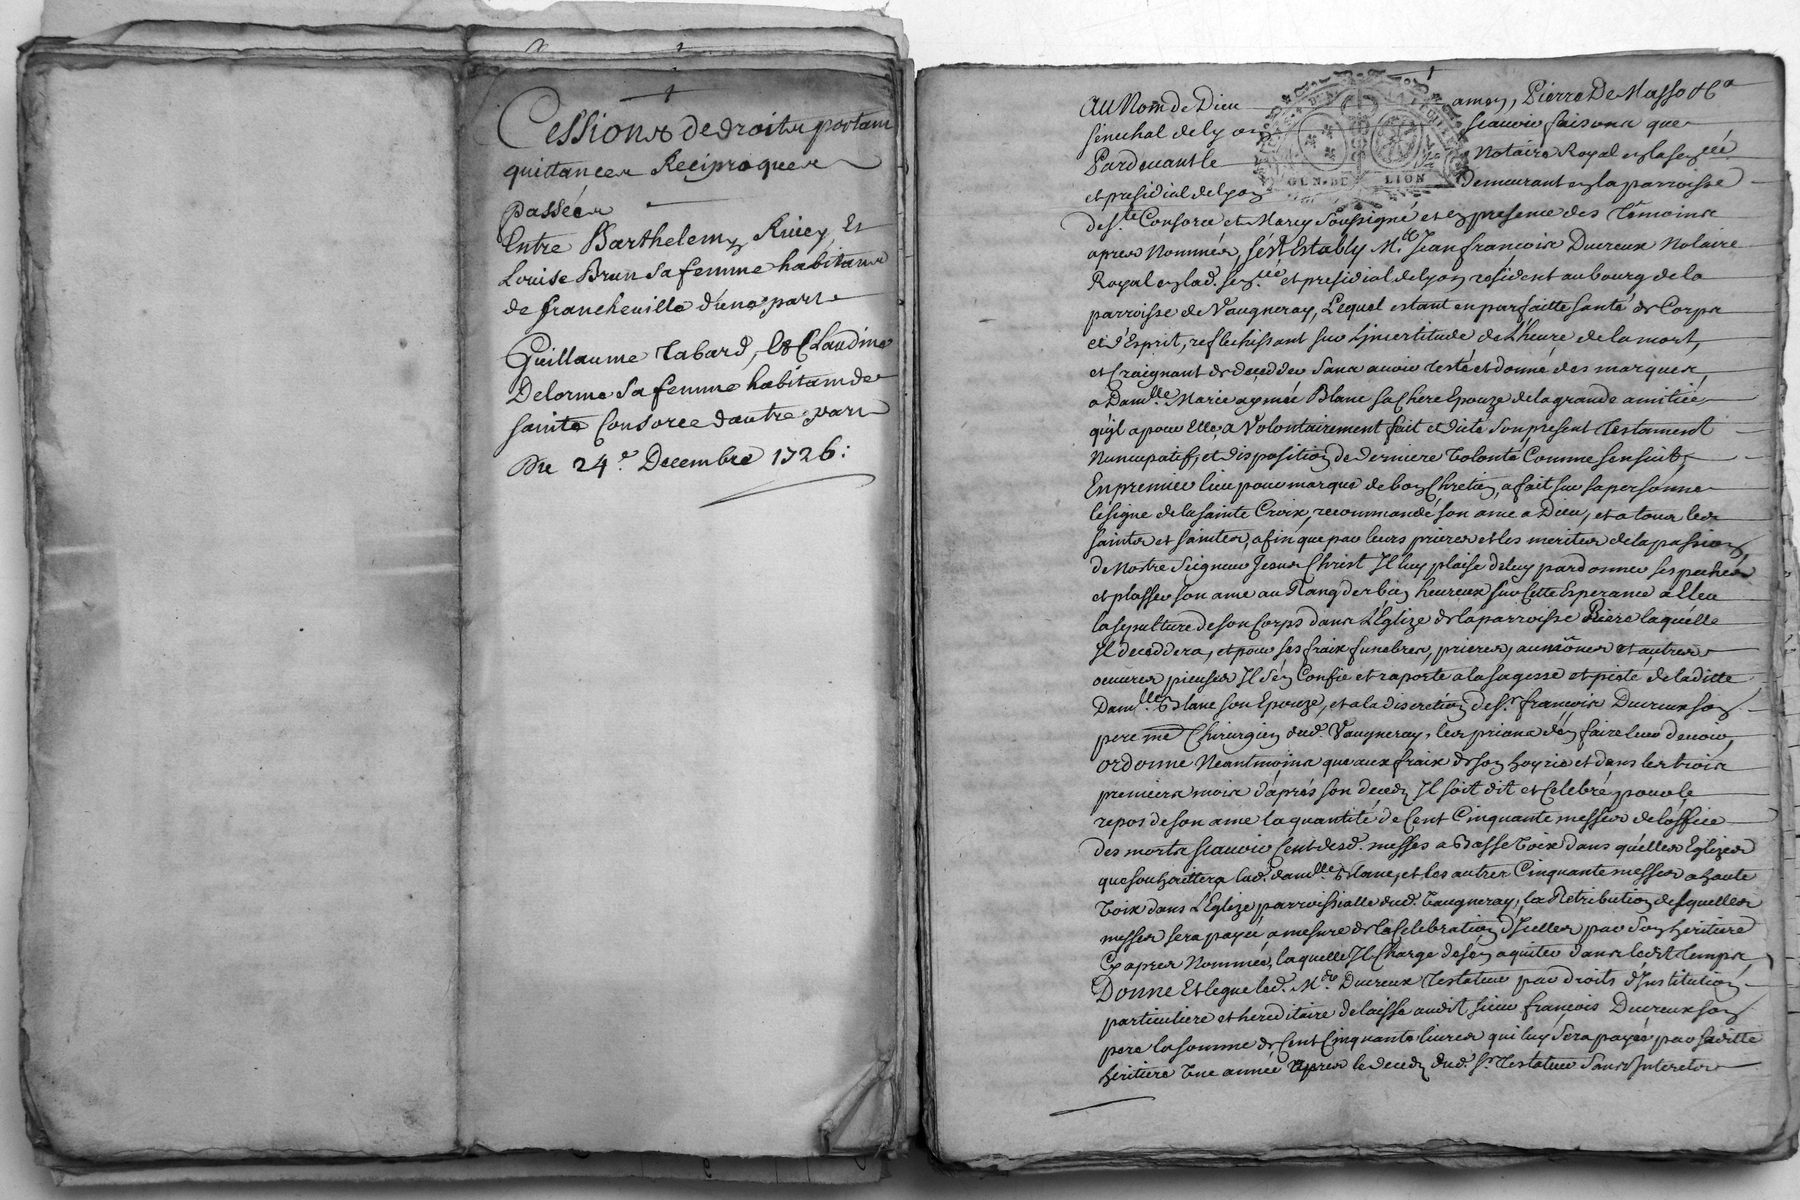 Cessions de droits portant
quittances Reciproques
passées
Entre Barthelemy Rivey Et
Louise Brun sa femme habitans
de francheville d'une part
Guillaume Tabard, Et Claudine
Delorme sa femme habitans de
sainte Consorce d'autre part
Du 24.e Decembre 1726:
Au Nom de Dieu amen, Pierre De Masso &ca
senechal de Lyon scavoir faisons que
Pardevant le Notaire Royal en la sen.cée
et presidial de Lyon demeurant en la parroisse
de s.te Consorce et Marcy soussigné et en presence des Témoins
apres Nommés, s'est Estably M.e Jean françois Ducreux Notaire
Royal en lad. sen.cée et presidial de Lyon resident au bourg de la
parroisse de Vaugneray, Lequel estant en parfaitte santé de Corps
et d'Esprit, reflechissant sur L'incertitude de L'heure de la mort,
et Craignant de deceder sans avoir Testé et donné des marques
a Dam.lle Marie aymée Blanc sa Chere Epouze de la grande amitiée
qu'il a pour Elle, a Volontairement fait et dicté son present Testament
Nuncupatif, et disposition de derniere Volonté Comme s'ensuit,
En premier lieu pour marque de bon Chretien, a fait sur sa personne
le signe de la sainte Croix, recommandé son ame a Dieu, et a tous les
saints et saintes, afin que par leurs prieres et les merites de la passion
de Nostre Seigneur Jesus Christ Il luy plaise de luy pardonner ses pechés
et placser son ame au Rang des bien heureux sur Cette Esperance a Eleu
la sepulture de son Corps dans L'Eglize de la parroisse Riere laquelle
Il deceddera, et pour ses fraix funebres, prieres, aumônes et autres
oeuvres pieuses Il s'en Confie et raporte a la sagesse et pieté de laditte
Dam.lle Blanc son Epouze, et a la discretion de s.r françois Ducreux son
pere me Chirurgien dud. Vaugneray, les priant d'en faire leur devoir,
ordonne Neantmoins que aux fraix de son hoyrie et dans les trois
premiers mois d'aprés son decedz Il soit dit et Celebré pour le
repos de son ame la quantité de Cent Cinquante messes de l'office
des morts scavoir Cent desd. messes a Basse Voix dans quelles Eglizes
que souhaittera lad. dam.lle Blanc, et les autres Cinquante messes a haute
Voix dans L'Eglize parroissialle dud. Vaugneray, la Retribution desquelles
messes sera payée a mesure de la Celebration d'Icelles par son heritiere
Cy apres Nommée, laquelle Il Charge de s'en aquiter dans ledit Temps,
Donne Et Legue led. M.e Ducreux Testateur par droits d'Institution
particuliere et hereditaire delaisse audit sieur françois Ducreux son
pere la somme de Cent Cinquante livres qui luy sera payée par saditte
heritiere Une année Apres le decedz dud. s.r Testateur sans Interets